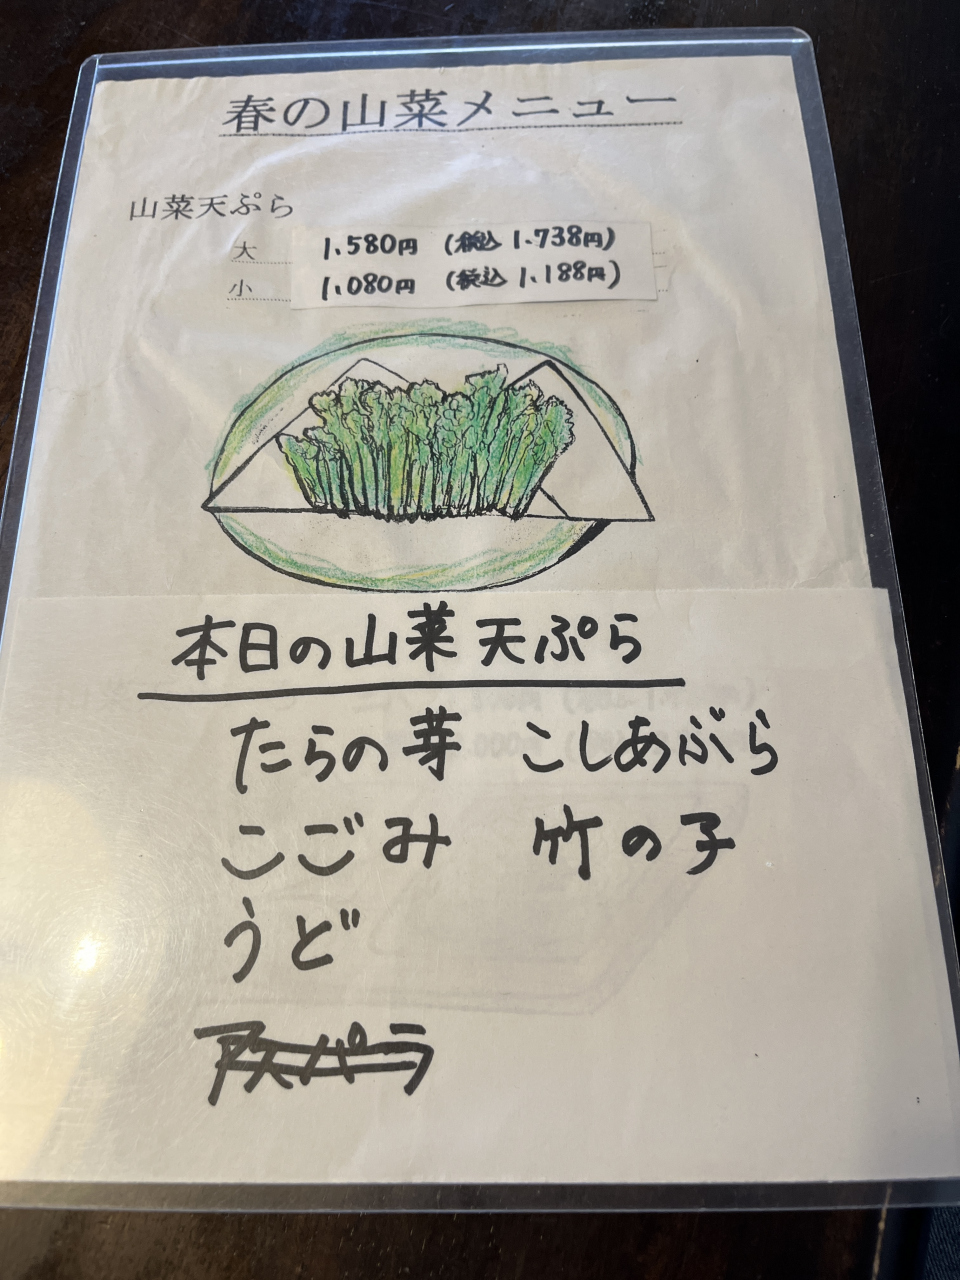 春の山菜メニュー
山菜天ぷら
大 1,580円 (税込 1,738円)
小 1,080円 (税込 1,188円)
本日の山菜天ぷら
たらの芽 こしあぶら
こごみ 竹の子
うど
アスパラ